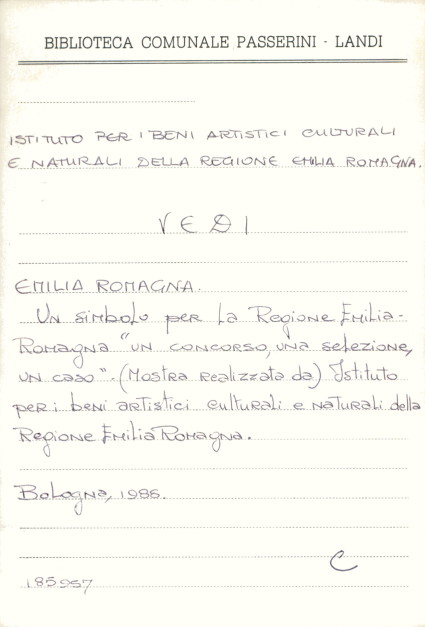 BIBLIOTECA COMUNALE PASSERINI - LANDI
ISTITUTO PER I BENI ARTISTICI CULTURALI
E NATURALI DELLA REGIONE EMILIA ROMAGNA.
VEDI
EMILIA ROMAGNA.
Un simbolo per la Regione Emilia-
Romagna "un concorso, una selezione,
un caso". (Mostra realizzata da) Istituto
per i beni artistici culturali e naturali della
Regione Emilia Romagna.
Bologna, 1986.
C
185957